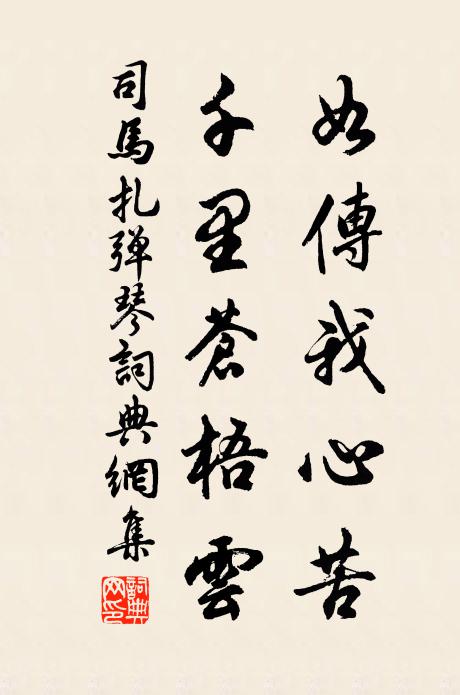 如傳我心苦
千里蒼梧雲
司馬扎彈琴詞典網集
詞典
网印